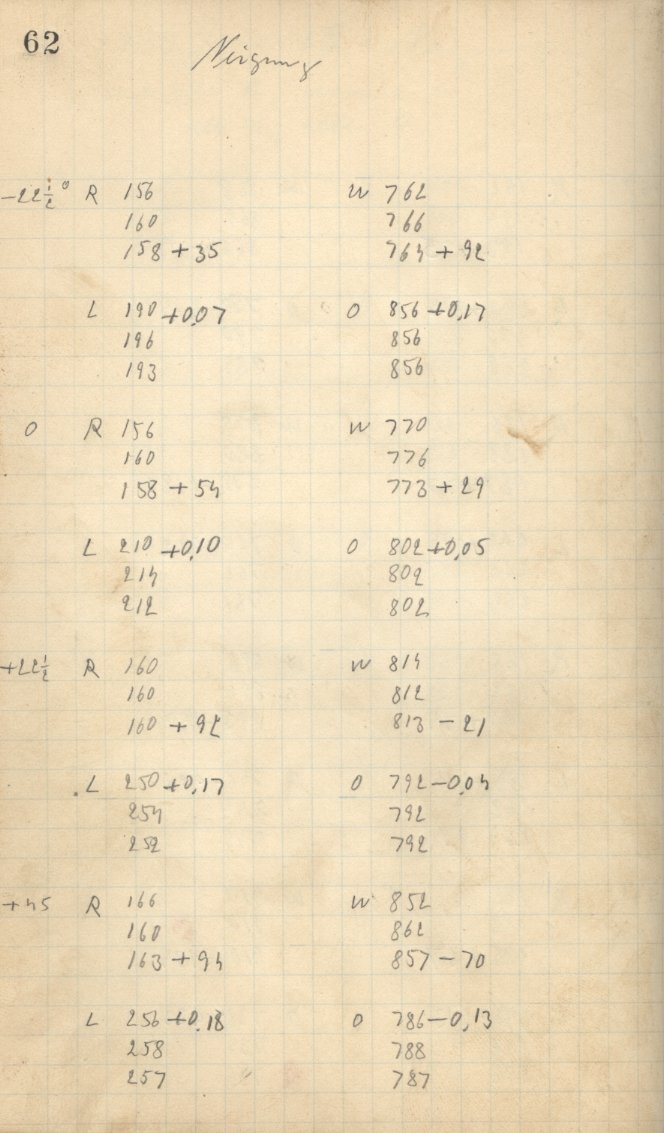 62
Neigung
-22½° R 156 W 762
160 766
158 + 35 764 + 92
L 190 +0.07 O 856 +0,17
196 856
193 856
0 R 156 W 770
160 776
158 + 54 773 + 29
L 210 +0,10 O 802 +0,05
214 802
212 802
+22½ R 160 W 814
160 812
160 + 92 813 - 21
L 250 +0,17 O 792 -0,04
254 792
252 792
+45 R 166 W 852
160 862
163 + 94 857 - 70
L 256 +0.18 O 786 -0,13
258 788
257 787